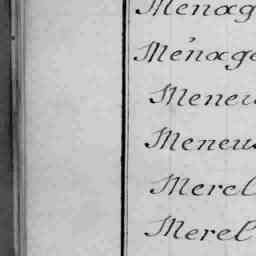 Menag
Ménage
Meneu
Meneus
Merel
Merel